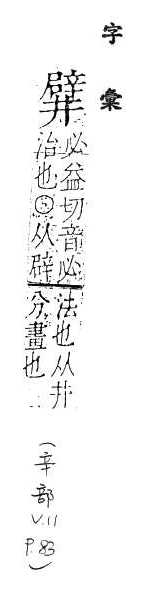 字彙
𨐨
必益切音必
治也◎从辟
法也从井
分畫也
(辛部
V.11
P.83)